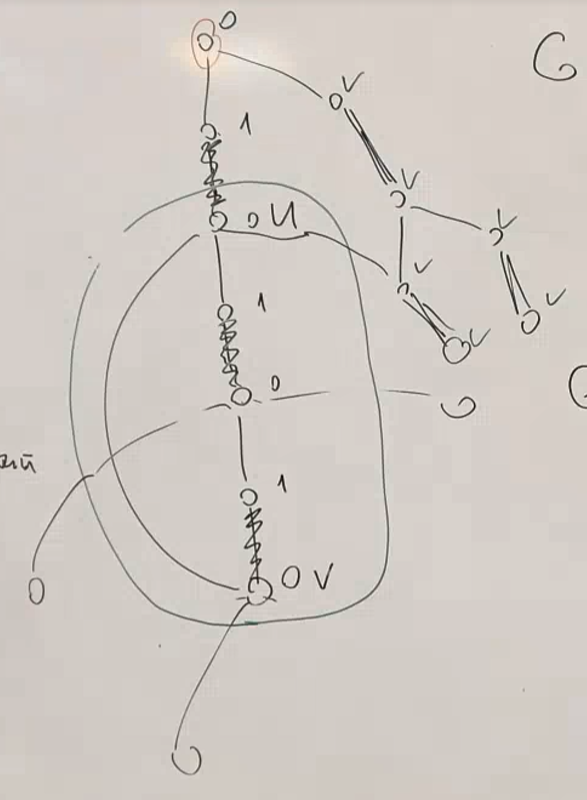 0
G
V
1
V
0 U
V
V
1
V
V
0
1
0 V